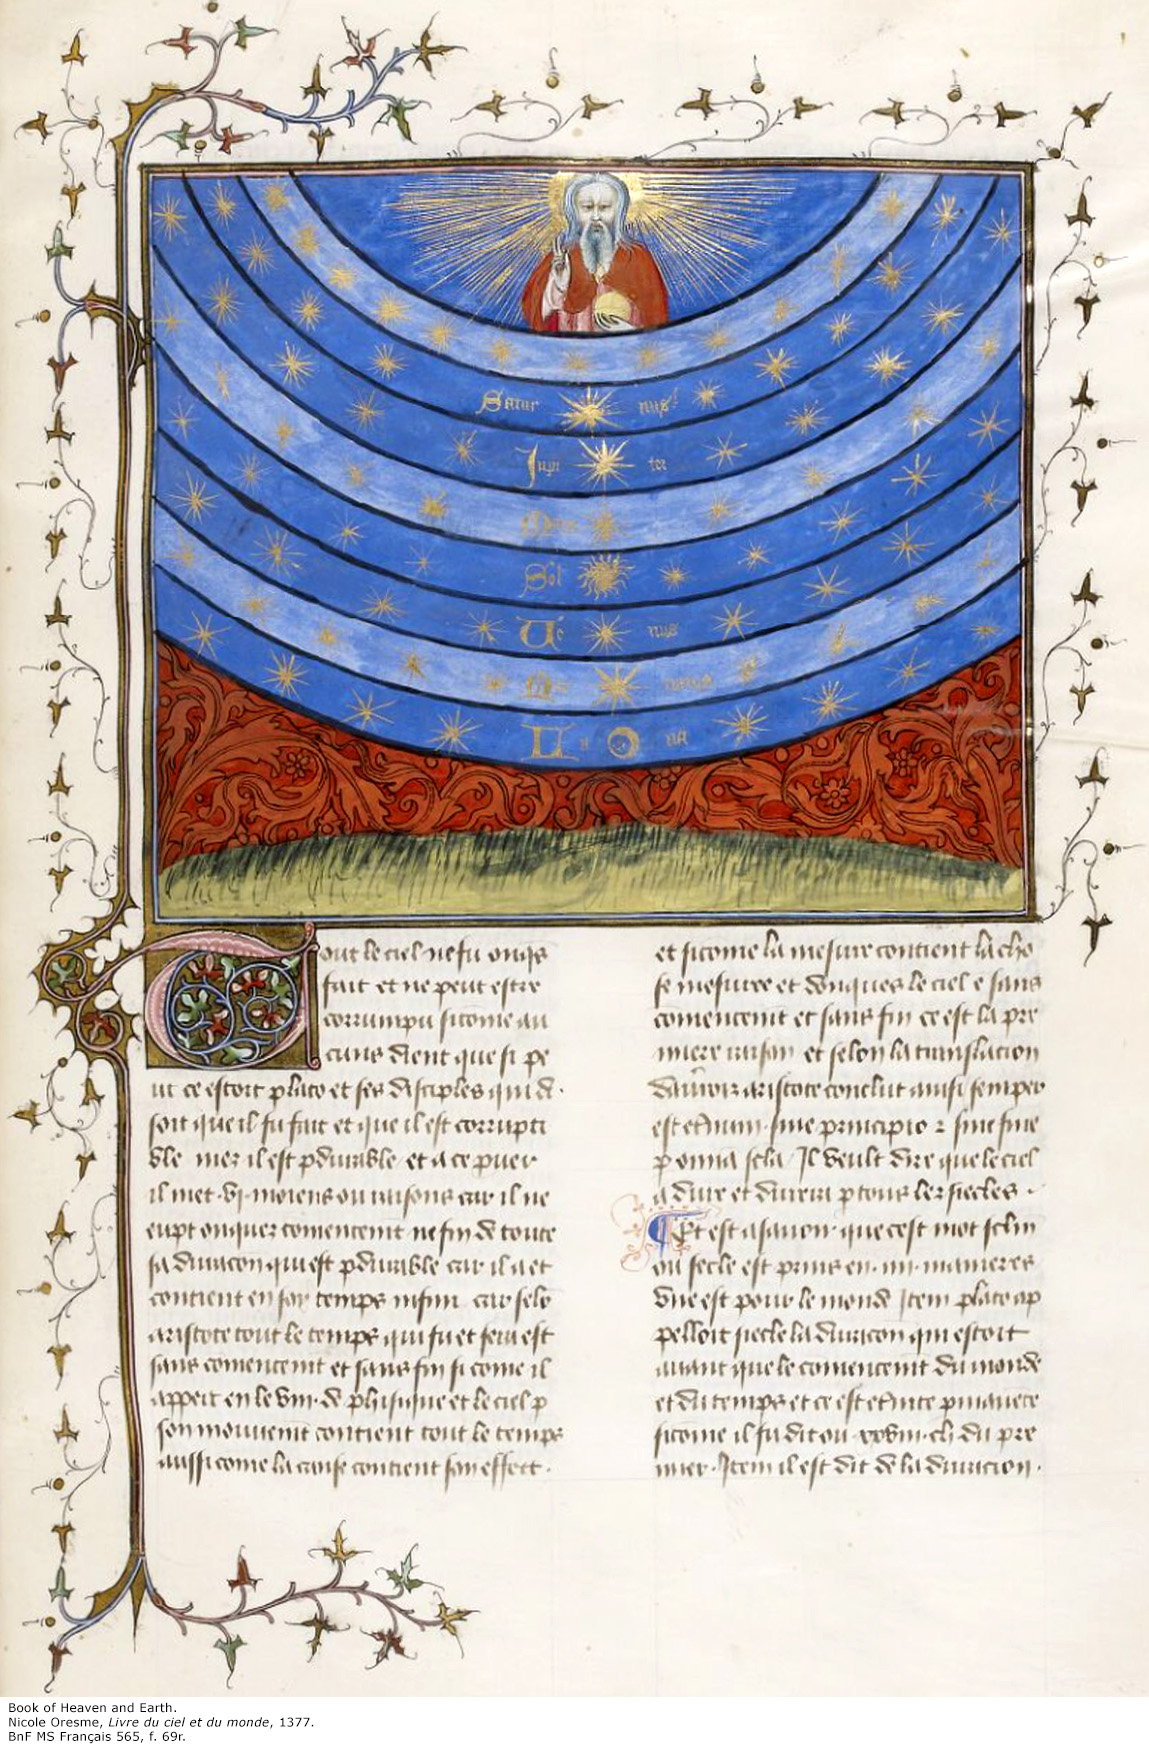 Satur nus
Jupi ter
Mars
Sol
Ve nus
Mer curius
Lu na
Tout le ciel ne fu onqs
fait et ne peut estre
corrumpu sicome au
cuns dient que si pe
ut ce estoit plato et ses disciples qui di
soit que il fu fait et que il est corrupti
ble mez il est pdurable et a ce puer
il met .vi. moiens ou raisons car il ne
eupt onquez comencemt ne fin de toute
sa duracon qui est pdurable car il a et
contient en soy temps infini car selo
aristote tout le temps qui fu et sera est
sans comencemt et sans fin si come il
appert en le viii. de phisique et le ciel p
son mouvemt contient tout le temps
aussi come la cause contient son effect.
et sicome la mesure contient la cho
se mesuree et donques le ciel e sans
comencemt et sans fin ce est la pre
miere raison et selon la translacion
aristote conclut ainsi semper
est etnum sine principio 2 sine fine
p omnia scla Il veult dire que le ciel
a dure et durera p tous lez siecles.
Et est a savoir que cest mot sclm
ou secle est prins en .iiii. manieres
une est pour le monde Item plato ap
pelloit siecle la duracon qui estoit
avant que le comencemt du monde
et du temps et ce est etnite pmanete
sicome il fu dit ou ch du pre
mier. Item il est dit de la duracion.
Book of Heaven and Earth.
Nicole Oresme, Livre du ciel et du monde, 1377.
BnF MS Français 565, f. 69r.